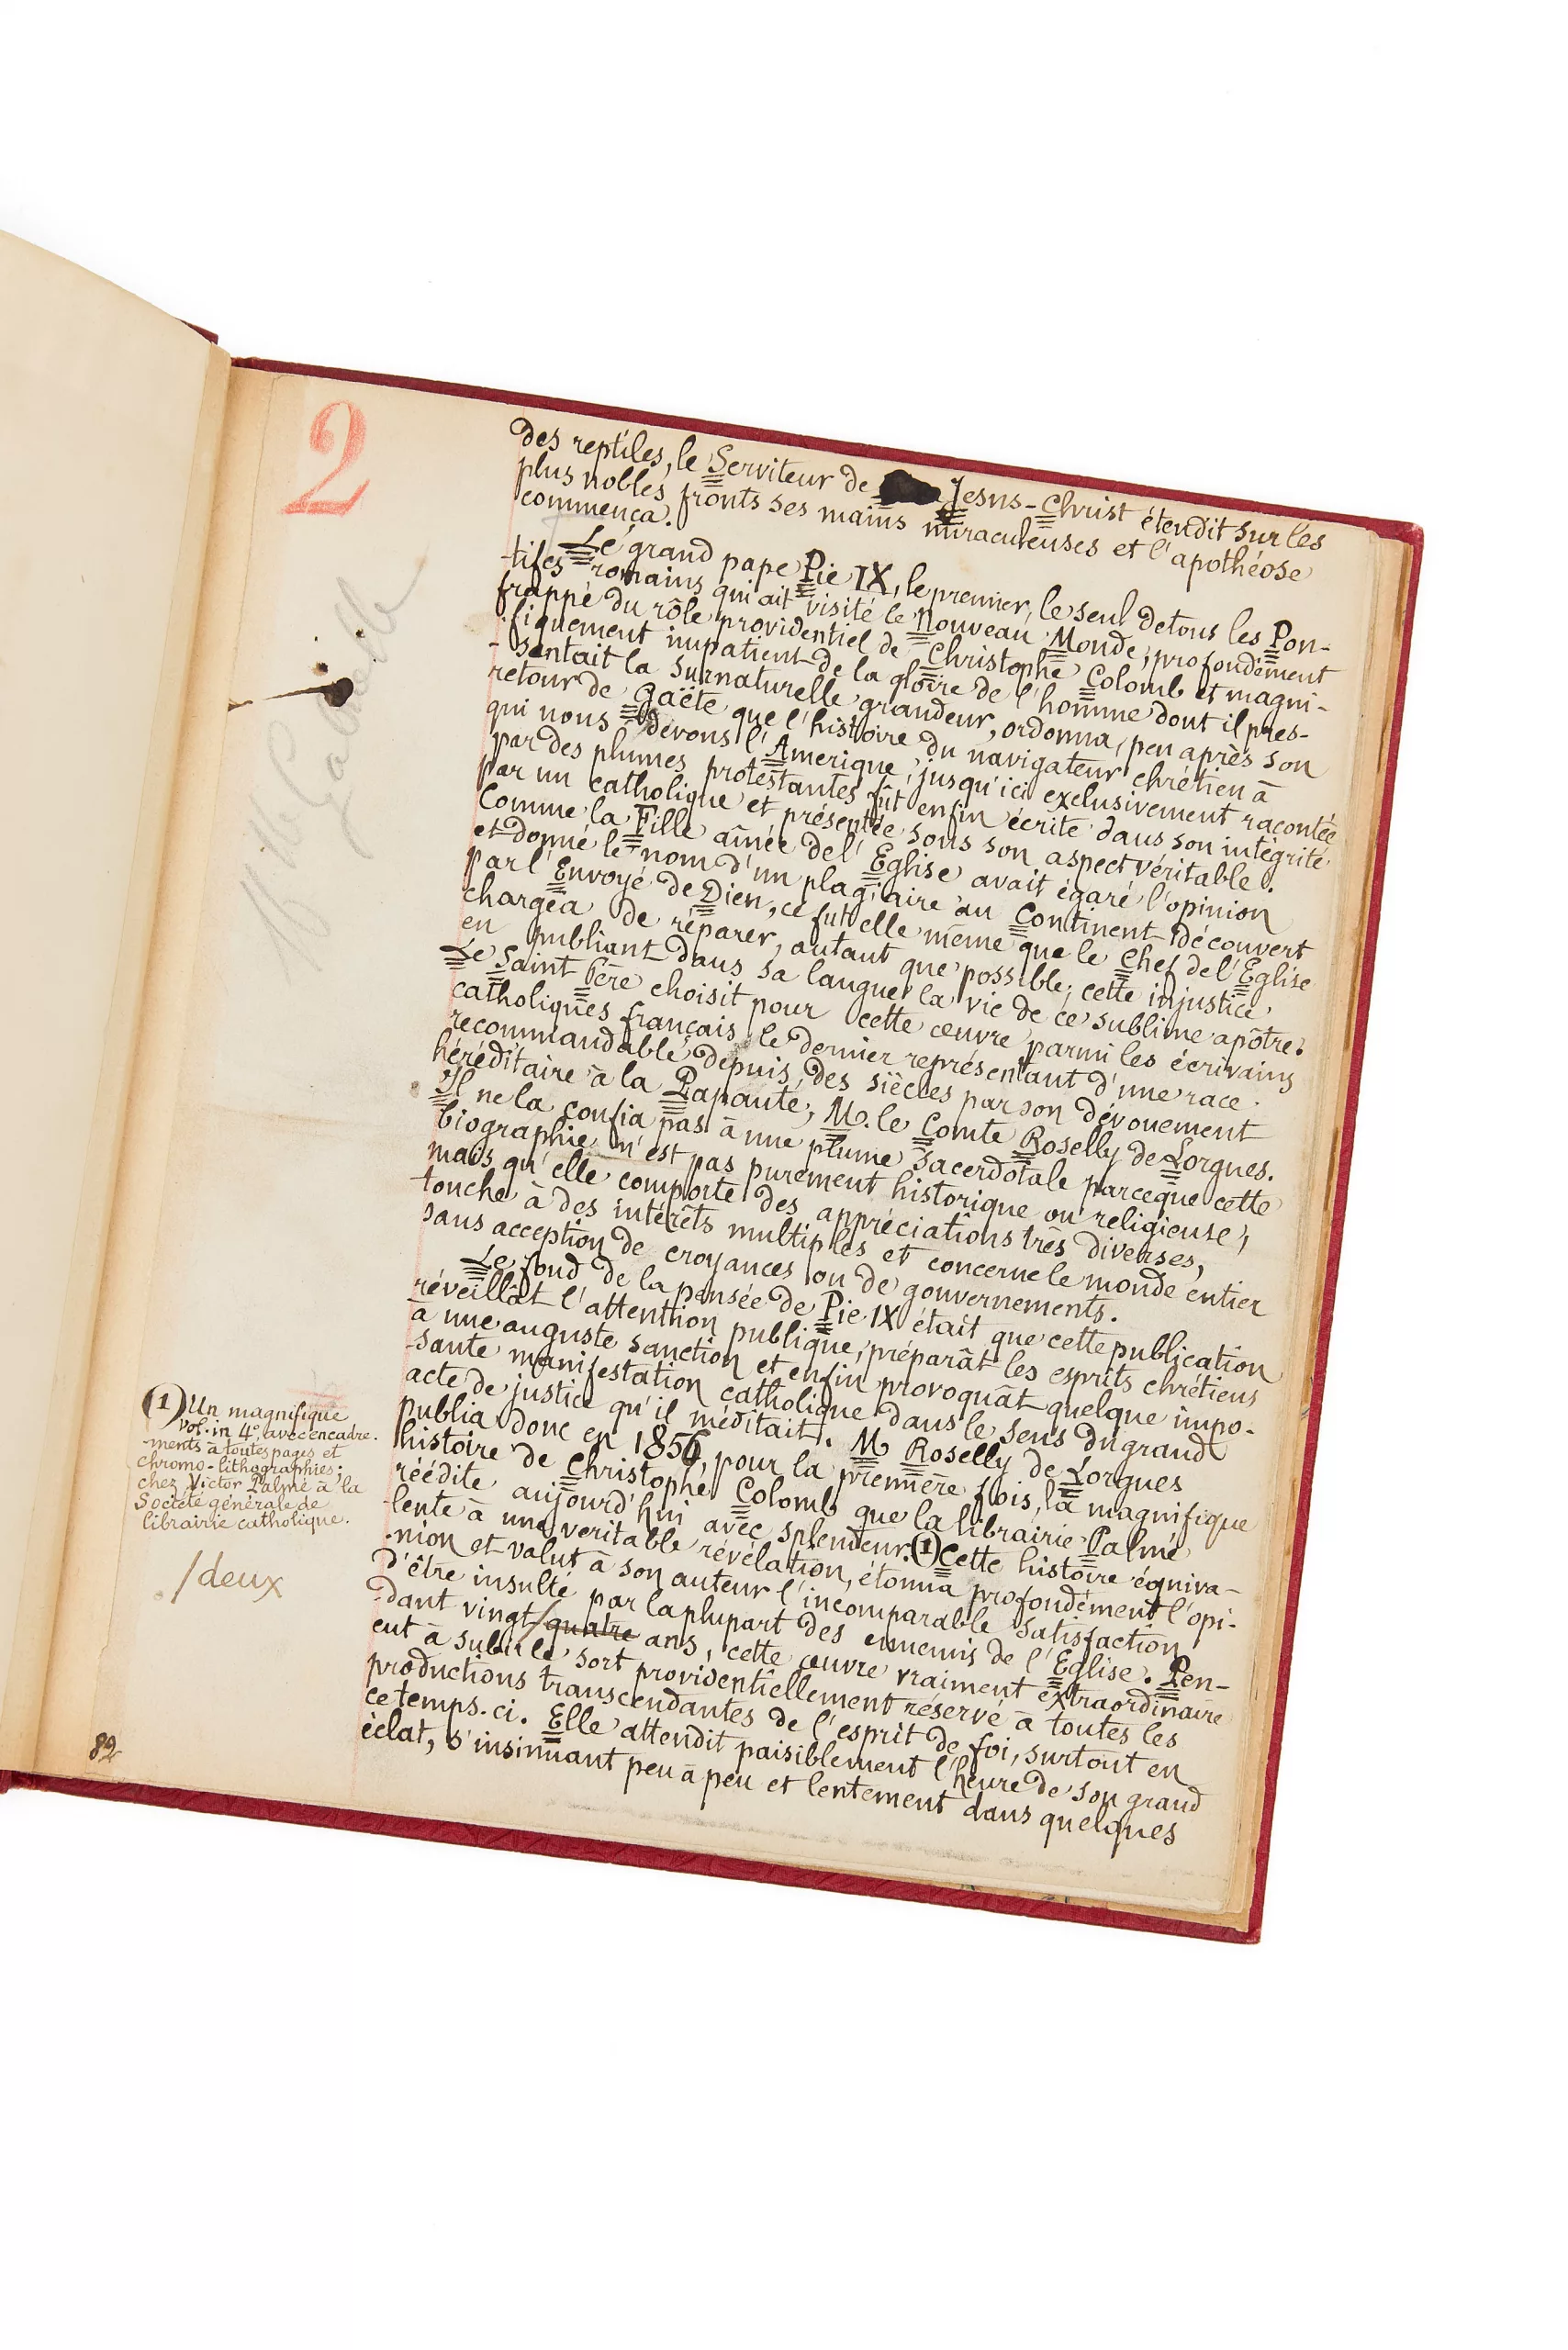 2
des reptiles, le Serviteur de Jesus-Christ étendit sur les
plus nobles fronts ses mains miraculeuses et l'apothéose
commença.
Le grand pape Pie IX, le premier, le seul de tous les Pon-
tifes romains qui ait visité le Nouveau Monde, profondément
frappé du rôle providentiel de Christophe Colomb et magni-
fiquement impatient de la gloire de l'homme dont il pres-
-sentait la surnaturelle grandeur, ordonna, peu après son
retour de Gaëte que l'histoire du navigateur chrétien à
qui nous devons l'Amerique, jusqu'ici exclusivement racontée
par des plumes protestantes fût enfin écrite dans son intégrité
par un catholique et présentée sous son aspect véritable.
Comme la Fille aînée de l'Eglise avait égaré l'opinion
et donné le nom d'un plagiaire au Continent découvert
par l'Envoyé de Dieu, ce fut elle même que le Chef de l'Eglise
chargea de réparer, autant que possible, cette injustice
en publiant dans sa langue la vie de ce sublime apôtre.
Le Saint Père choisit pour cette œuvre parmi les écrivains
catholiques français le dernier représentant d'une race
recommandable depuis des siècles par son dévouement
héréditaire à la Papauté, M. le Comte Roselly de Lorgues.
Il ne la confia pas à une plume sacerdotale parceque cette
biographie n'est pas purement historique ou religieuse,
mais qu'elle comporte des appréciations très diverses,
touche à des intérêts multiples et concerne le monde entier
sans acception de croyances ou de gouvernements.
Le fond de la pensée de Pie IX était que cette publication
réveillât l'attention publique, préparât les esprits chrétiens
à une auguste sanction et enfin provoquât quelque impo-
-sante manifestation catholique dans le sens du grand
acte de justice qu'il méditait. M Roselly de Lorgues
publia donc en 1856, pour la première fois, la magnifique
histoire de Christophe Colomb que la librairie Palmé
réédite aujourd'hui avec splendeur. (1) Cette histoire équiva-
lente à une veritable révélation, étonna profondément l'opi-
-nion et valut à son auteur l'incomparable satisfaction
d'être insulté par la plupart des ennemis de l'Eglise. Pen-
-dant vingt / quatre ans, cette œuvre vraiment extraordinaire
eut à subir le sort providentiellement réservé à toutes les
productions transcendantes de l'esprit de foi, surtout en
ce temps-ci. Elle attendit paisiblement l'heure de son grand
éclat, s'insinuant peu à peu et lentement dans quelques
(1) Un magnifique
vol. in 4°, avec encadre-
-ments à toutes pages et
chromo-lithographies;
chez Victor Palmé à la
Société générale de
librairie catholique.
/deux
82